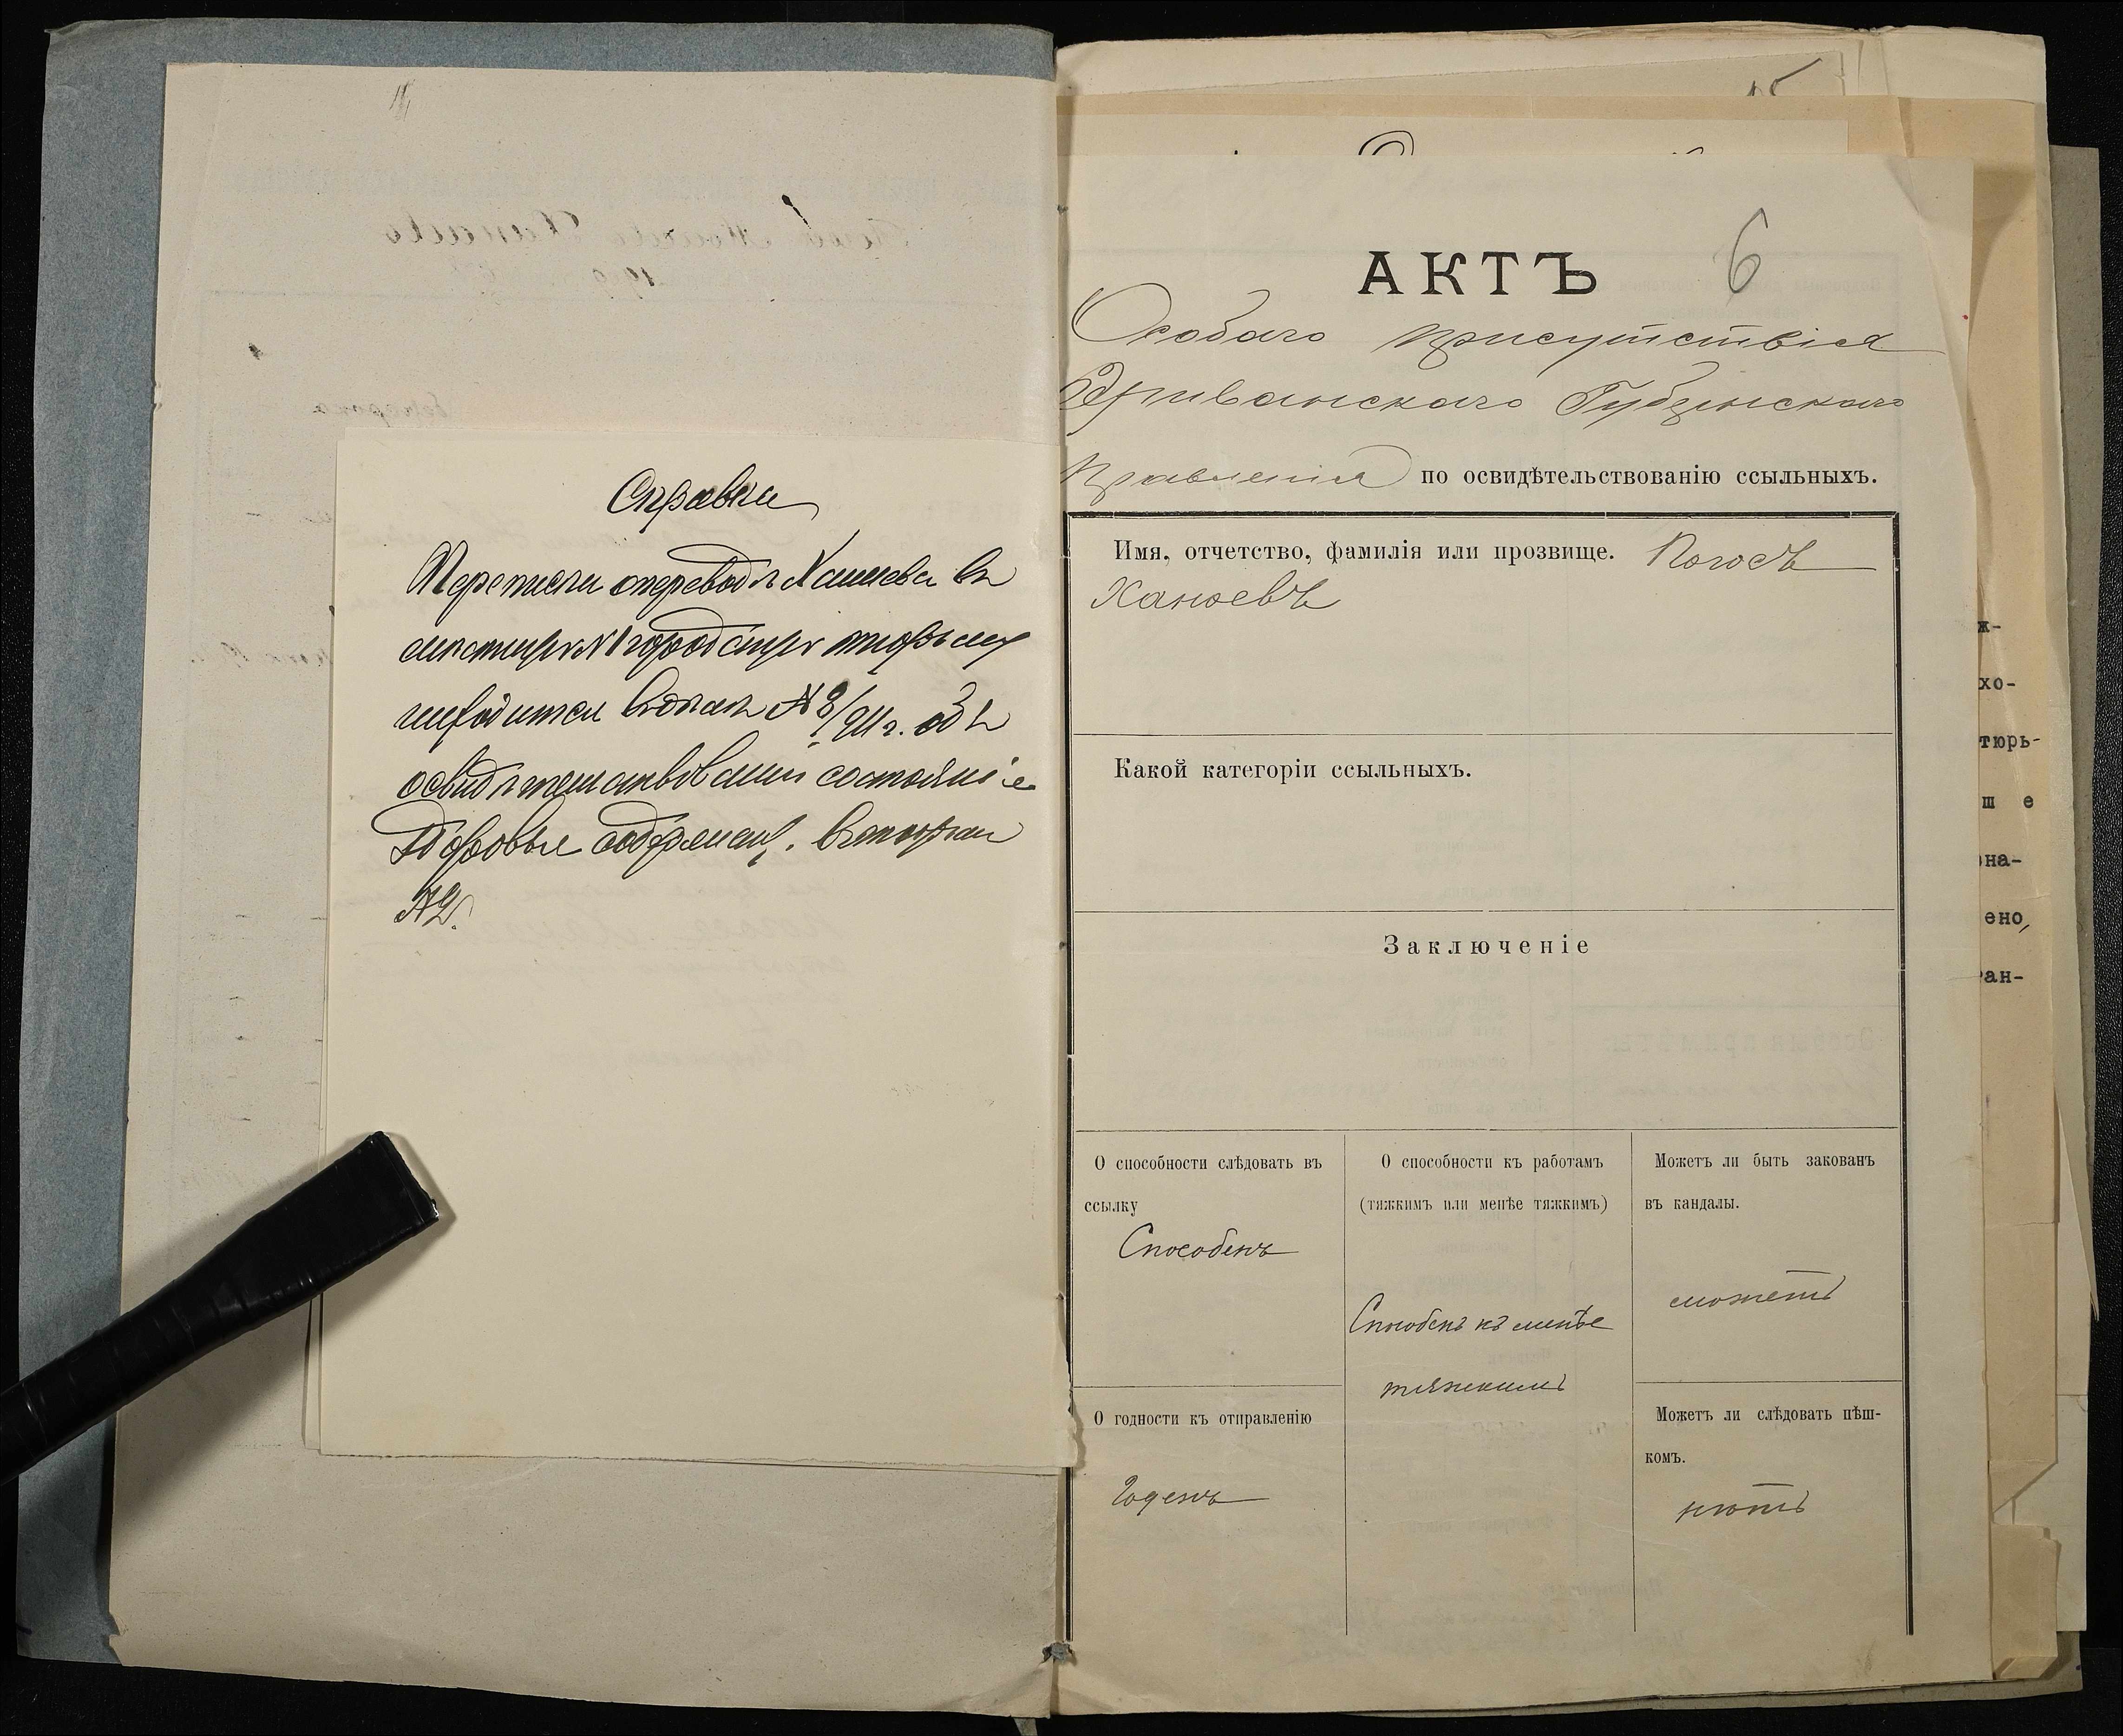 Справка
Переписка о переводѣ Ханоева въ
мѣстную № 1 городскую тюрьму
находится въ дѣлѣ № 8/911 г. объ
освидѣтельствованіи состоянiе
здоровье содержащ. въ тюрьмѣ
6
АКТЪ
Особаго Присутствія
Эриванскаго Губернскаго
Правленія по освидѣтельствованію ссыльныхъ.
Имя, отчетство, фамилія или прозвище. Погосъ
Ханоевъ
Какой категоріи ссыльныхъ.
Заключеніе
О способности слѣдовать въ
ссылку
Способенъ
О способности къ работамъ
(тяжкимъ или менѣе тяжкимъ)
Способенъ къ менѣе
тяжкимъ
Можетъ ли быть закованъ
въ кандалы.
можетъ
О годности къ отправленію
Годенъ
Можетъ ли слѣдовать пѣш-
комъ.
нѣтъ
ж-
хо-
тюрь-
ш е
на-
ено,
ан-